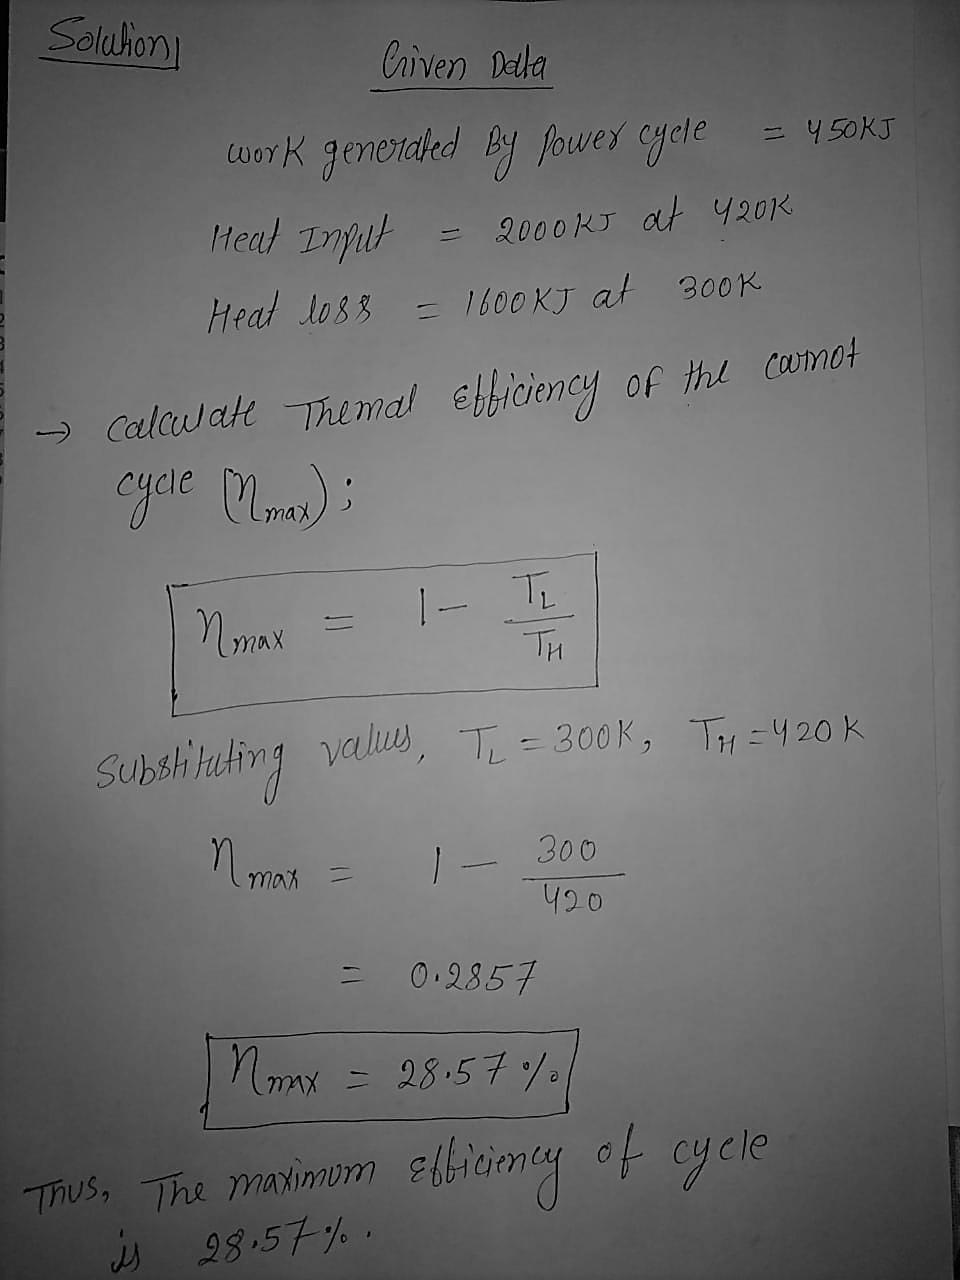 Solution
Given Data
work generated By Power cycle = 450KJ
Heat Input = 2000KJ at 420K
Heat loss = 1600KJ at 300K
→ Calculate Themal Efficiency of the carnot
cycle (ηmax);
ηmax = 1 - TL/TH
Substituting values, TL = 300K, TH = 420K
ηmax = 1 - 300/420
= 0.2857
ηmax = 28.57%
Thus, The maximum Efficiency of cycle
is 28.57%.